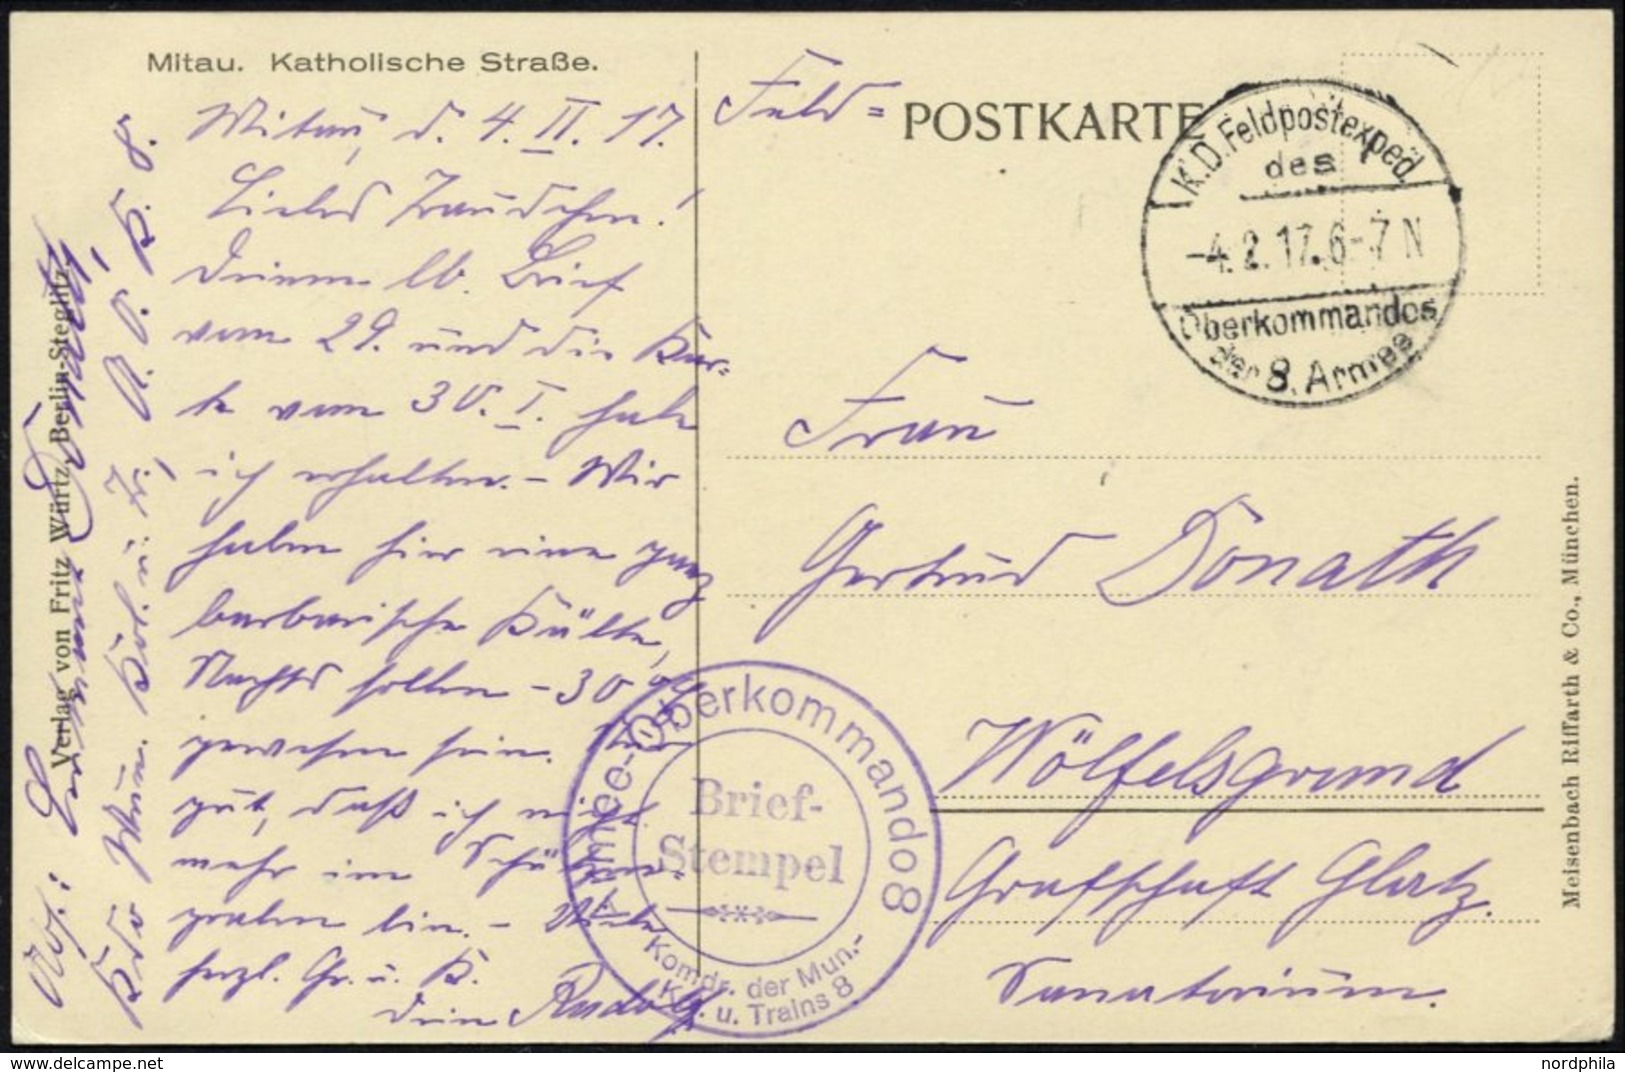 Mitau. Katholische Straße.
Mitau, d. 4. II. 17.
Liebes Traudchen!
Deinen lb. Brief
vom 29. und die Kar=
te vom 30. I. habe
ich erhalten. - Wir
haben hier eine ganz
barbarische Kälte,
Nachts sollen - 30°
gewesen sein. Nur
gut, daß ich nicht
mehr im Schützen-
graben bin. - Viele
herzl. Gr. u. K.
Dein Rudolf
Abs: Leutnant Donath,
Kdr Mun. Kol. u. Tr. 8. A. O. K. 8.
Verlag von Fritz Würtz, Berlin-Steglitz.
Feld= POSTKARTE
K.D. Feldpostexped.
des
-4.2.17.6-7 N
Oberkommandos
der 8. Armee
Frau
Gertrud Donath
Wölfelsgrund
Grafschaft Glatz.
Sanatorium.
Armee-Oberkommando 8
Brief-
Stempel
Komdr. der Mun.-
K. u. Trains 8
Meisenbach Riffarth & Co., München.
delcampe.net
nordphila